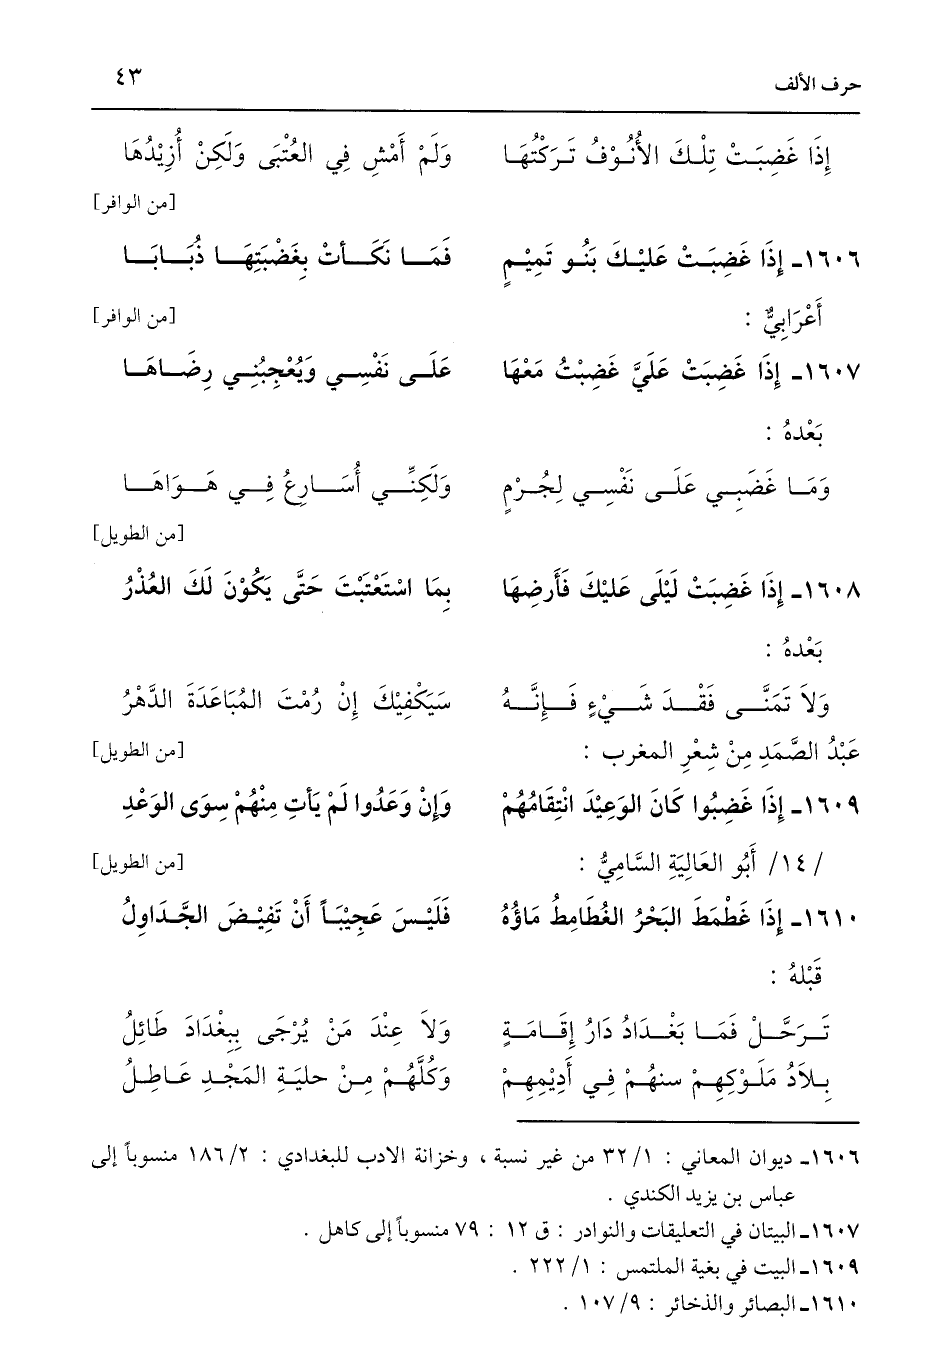 حرف الألف ٤٣
إِذَا غَضِبَتْ تِلْكَ الأُنُوْفُ تَرَكْتُهَا وَلَمْ أَمْشِ فِي العُتْبَى وَلَكِنْ أُزِيْدُهَا
[من الوافر]
١٦٠٦ـ إِذَا غَضِبَتْ عَلَيْكَ بَنُو تَمِيْمٍ فَمَا نَكَأَتْ بِغَضْبَتِهَا ذُبَابَا
أَعْرَابِيٌّ : [من الوافر]
١٦٠٧ـ إِذَا غَضِبَتْ عَلَيَّ غَضِبْتُ مَعْهَا عَلَى نَفْسِي وَيُعْجِبُنِي رِضَاهَا
بَعْدهُ :
وَمَا غَضَبِي عَلَى نَفْسِي لِجُرْمٍ وَلَكِنِّي أُسَارِعُ فِي هَوَاهَا
[من الطويل]
١٦٠٨ـ إِذَا غَضِبَتْ لَيْلَى عَلَيْكَ فَأَرضِهَا بِمَا اسْتَعْتَبْتَ حَتَّى يَكُوْنَ لَكَ العُذْرُ
بَعْدهُ :
وَلاَ تَمَنَّى فَقْدَ شَيْءٍ فَإِنَّهُ سَيَكْفِيْكَ إِنْ رُمْتَ المُبَاعَدَةَ الدَّهْرُ
عَبْدُ الصَّمَدِ مِنْ شِعْرِ المغرب : [من الطويل]
١٦٠٩ـ إِذَا غَضِبُوا كَانَ الوَعِيْدَ انْتِقَامُهُمْ وَإِنْ وَعَدُوا لَمْ يَأتِ مِنْهُمْ سِوَى الوَعْدِ
/١٤/ أَبُو العَالِيَةِ السَّامِيُّ : [من الطويل]
١٦١٠ـ إِذَا غَطْمَطَ البَحْرُ الغُطَامِطُ مَاؤُهُ فَلَيْسَ عَجِيْبَاً أَنْ تَفِيْضَ الجَّدَاوِلُ
قَبْلهُ :
تَرَحَّلْ فَمَا بَغْدَادُ دَارُ إِقَامَةٍ وَلاَ عِنْدَ مَنْ يُرْجَى بِبَغْدَادَ طَائِلُ
بِلاَدُ مَلَوْكِهِمْ سنهُمْ فِي أَدِيْمِهِمْ وَكُلَّهُمْ مِنْ حليَةِ المَجْدِ عَاطِلُ
١٦٠٦ـ ديوان المعاني : ٣٢/١ من غير نسبة ، وخزانة الادب للبغدادي : ١٨٦/٢ منسوباً إلى
عباس بن يزيد الكندي .
١٦٠٧ـ البيتان في التعليقات والنوادر : ق ١٢ : ٧٩ منسوباً إلى كاهل .
١٦٠٩ـ البيت في بغية الملتمس : ٢٢٢/١ .
١٦١٠ـ البصائر والذخائر : ١٠٧/٩ .